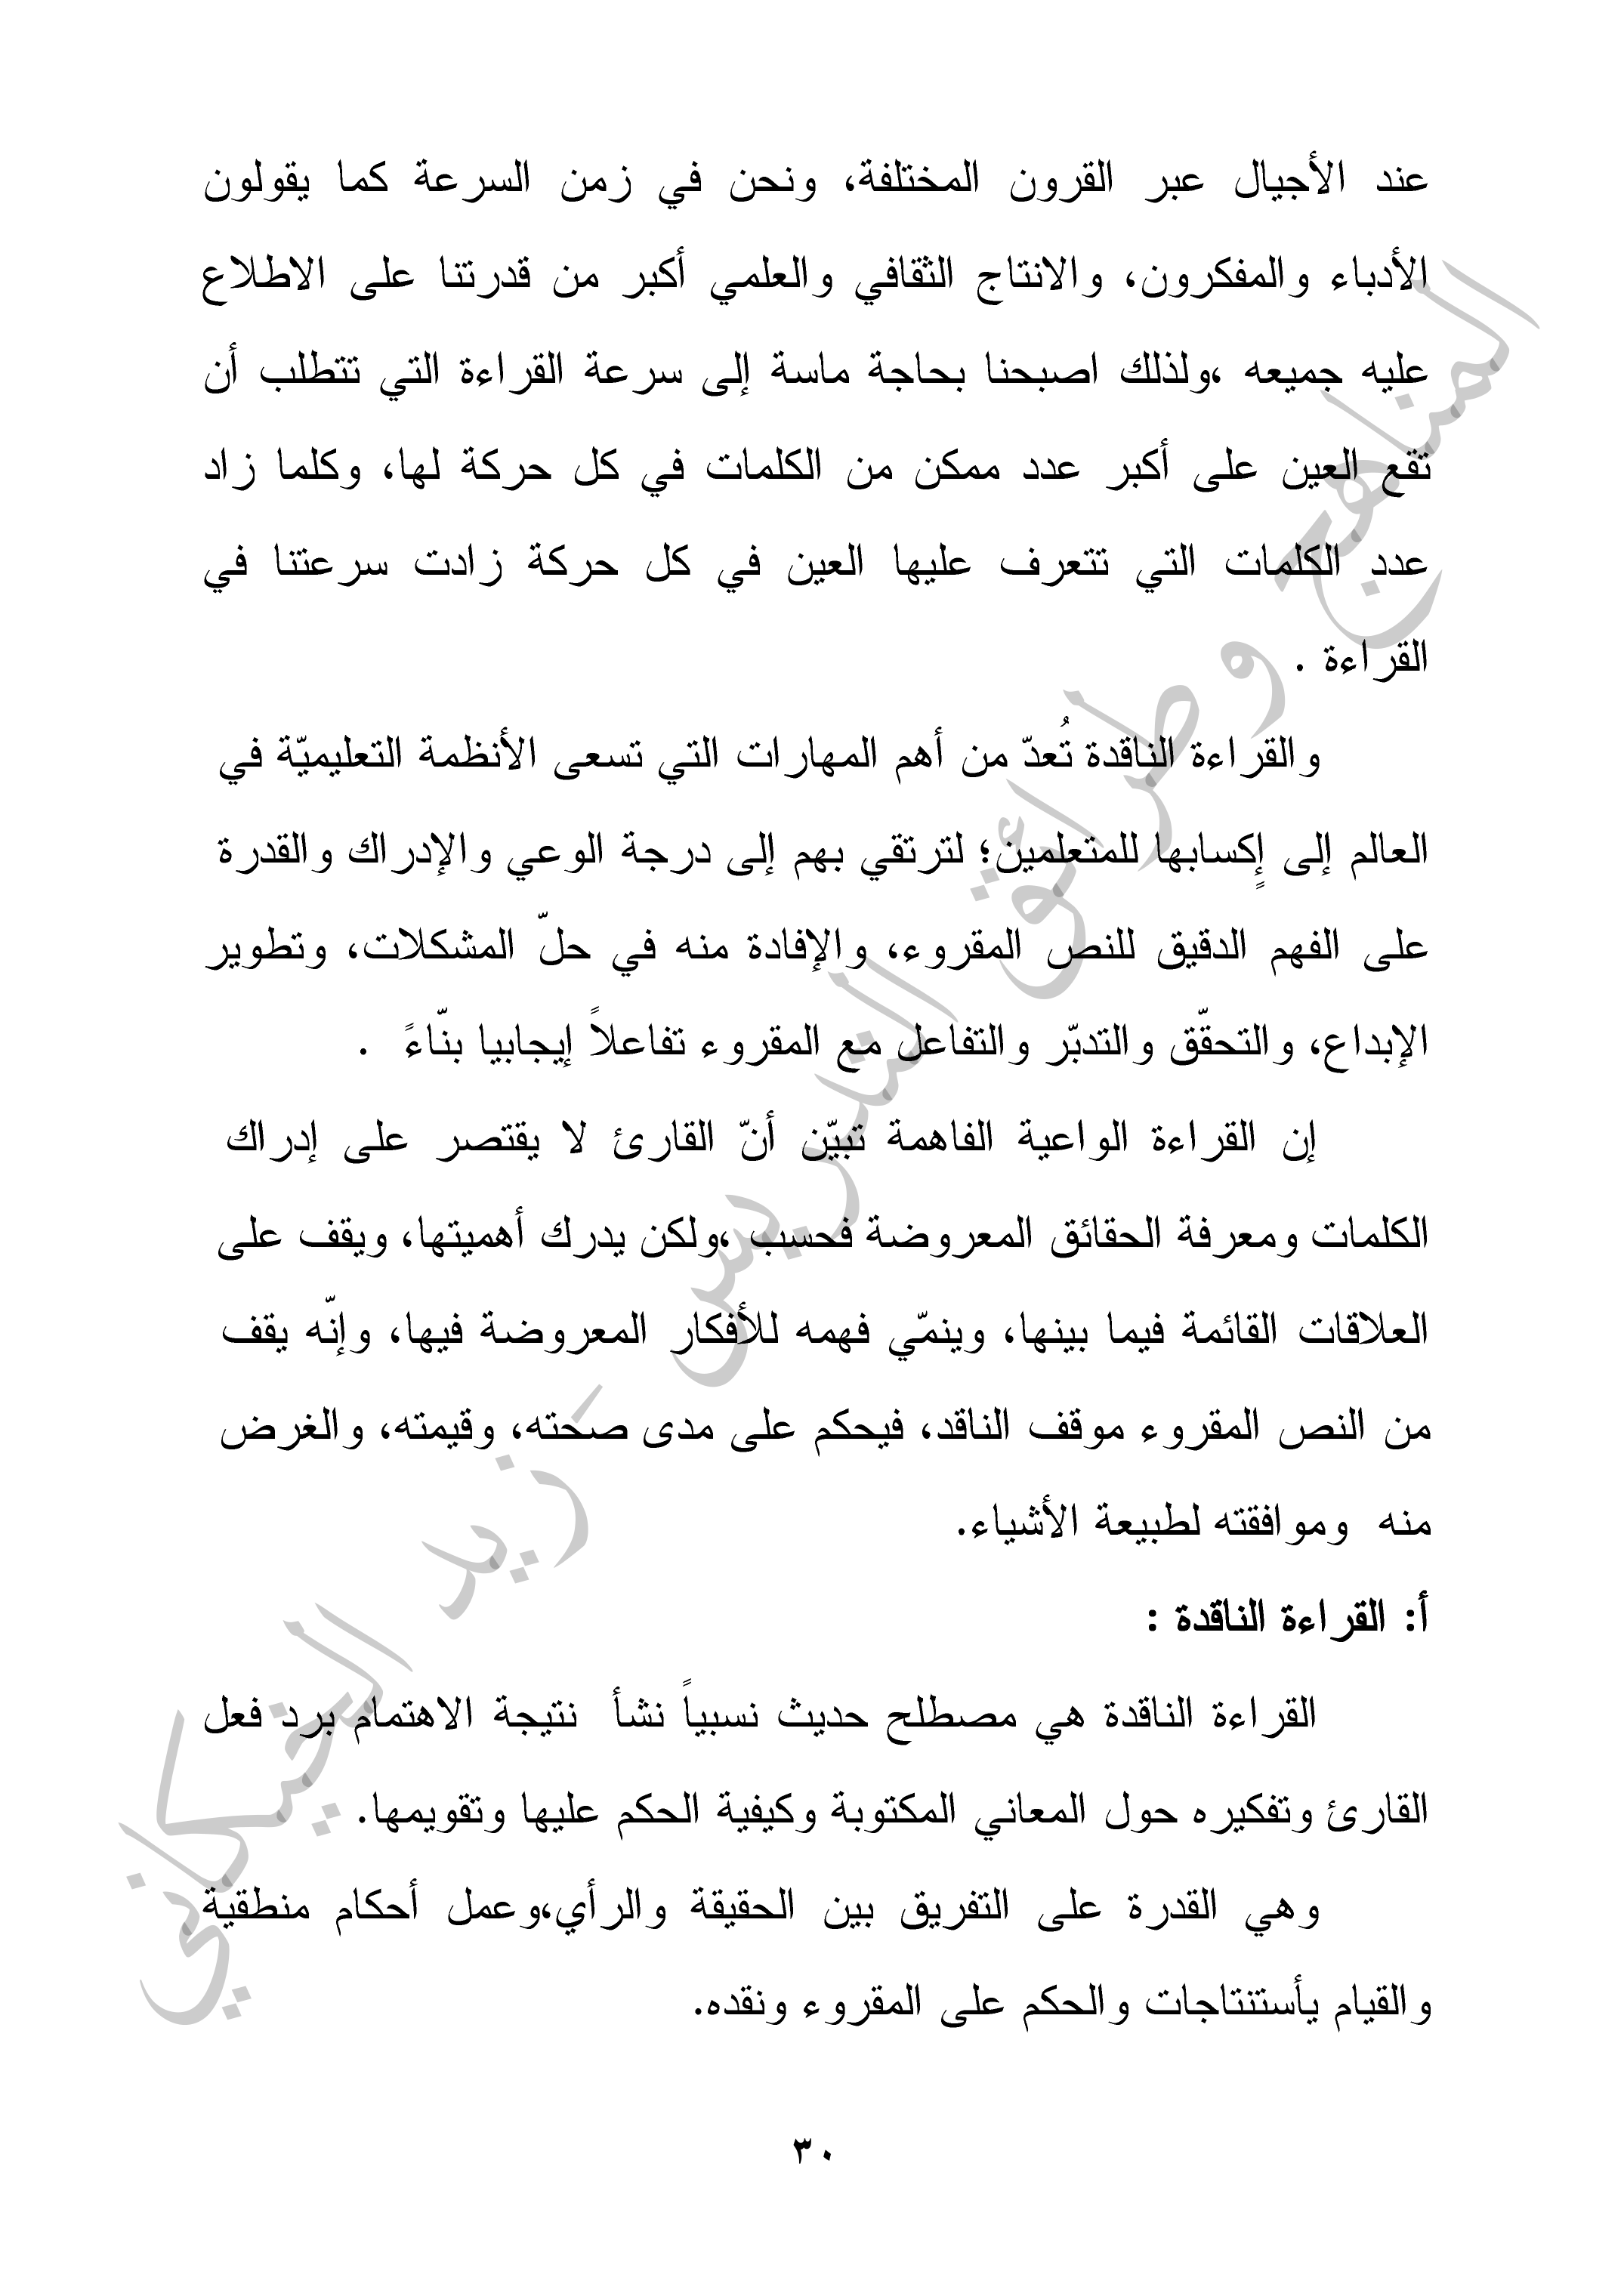 عند الأجيال عبر القرون المختلفة، ونحن في زمن السرعة كما يقولون
الأدباء والمفكرون، والانتاج الثقافي والعلمي أكبر من قدرتنا على الاطلاع
عليه جميعه ،ولذلك اصبحنا بحاجة ماسة إلى سرعة القراءة التي تتطلب أن
تقع العين على أكبر عدد ممكن من الكلمات في كل حركة لها، وكلما زاد
عدد الكلمات التي تتعرف عليها العين في كل حركة زادت سرعتنا في
القراءة .
والقراءة الناقدة تُعدّ من أهم المهارات التي تسعى الأنظمة التعليميّة في
العالم إلى إٍكسابها للمتعلمين؛ لترتقي بهم إلى درجة الوعي والإدراك والقدرة
على الفهم الدقيق للنص المقروء، والإفادة منه في حلّ المشكلات، وتطوير
الإبداع، والتحقّق والتدبّر والتفاعل مع المقروء تفاعلاً إيجابيا بنّاءً .
إن القراءة الواعية الفاهمة تبيّن أنّ القارئ لا يقتصر على إدراك
الكلمات ومعرفة الحقائق المعروضة فحسب ،ولكن يدرك أهميتها، ويقف على
العلاقات القائمة فيما بينها، وينمّي فهمه للأفكار المعروضة فيها، وإنّه يقف
من النص المقروء موقف الناقد، فيحكم على مدى صحته، وقيمته، والغرض
منه وموافقته لطبيعة الأشياء.
أ: القراءة الناقدة :
القراءة الناقدة هي مصطلح حديث نسبياً نشأ نتيجة الاهتمام برد فعل
القارئ وتفكيره حول المعاني المكتوبة وكيفية الحكم عليها وتقويمها.
وهي القدرة على التفريق بين الحقيقة والرأي،وعمل أحكام منطقية
والقيام يأستنتاجات والحكم على المقروء ونقده.
٣٠
المناهج وطرائق التدريس - زيد الخيكاني